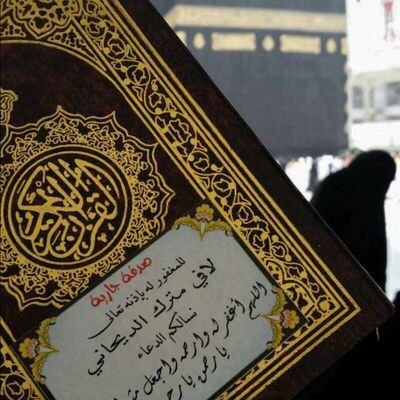 القرآن الكريم
صدقة جارية
للمغفور له بإذنه تعالى
لافي مترك الديحاني
نسألكم الدعاء
اللهم اغفر له وارحمه واجعل
يا رحمن يا